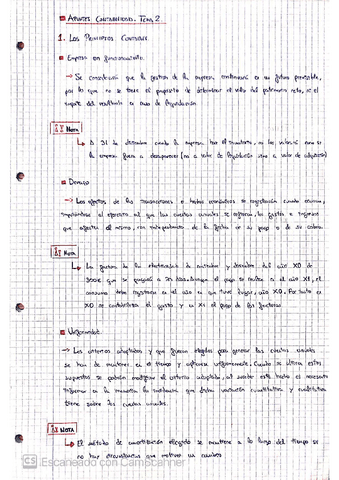 APUNTES CONTABILIDAD. TEMA 2
1. Los Principios Contables.
Empresa en funcionamiento.
→ Se considerará que la gestión de la empresa continuará en un futuro previsible,
por lo que no se tiene el propósito de determinar el valor del patrimonio neto, ni el
importe del resultado en caso de liquidación
NOTA
A 31 de diciembre cuando la empresa hace el inventario, no los valora como si
la empresa fuera a desaparecer (no a valor de liquidación sino a valor de adquisición)
Devengo
→ Los efectos de las transacciones o hechos económicos se registrarán cuando ocurran,
imputándose al ejercicio al que las cuentas anuales se refieran, los gastos e ingresos
que afecten al mismo, con independencia de la fecha de su pago o de su cobro.
NOTA
La factura de la electricidad de noviembre y diciembre del año X0 de
300€ que se pagará a 30 días. Aunque el pago se realice en el año X1, el
consumo debe registrarse en el año en que tuvo lugar, año X0. Por tanto en
X0 se contabilizará el gasto y en X1 el pago de las facturas
Uniformidad.
→ Los criterios adoptados y que fueron elegidos para generar las cuentas anuales
se han de mantener en el tiempo y aplicarse uniformemente. Cuando se alteren estos
supuestos se podrán modificar el criterio adoptado, al suceder este hecho es necesario
informar en la memoria la incidencia que dicha variación cuantitativa y cualitativa
tiene sobre las cuentas anuales.
NOTA
El método de amortización elegido se mantiene a lo largo del tiempo si no
hay circunstancias que motiven un cambio
CS Escaneado con CamScanner